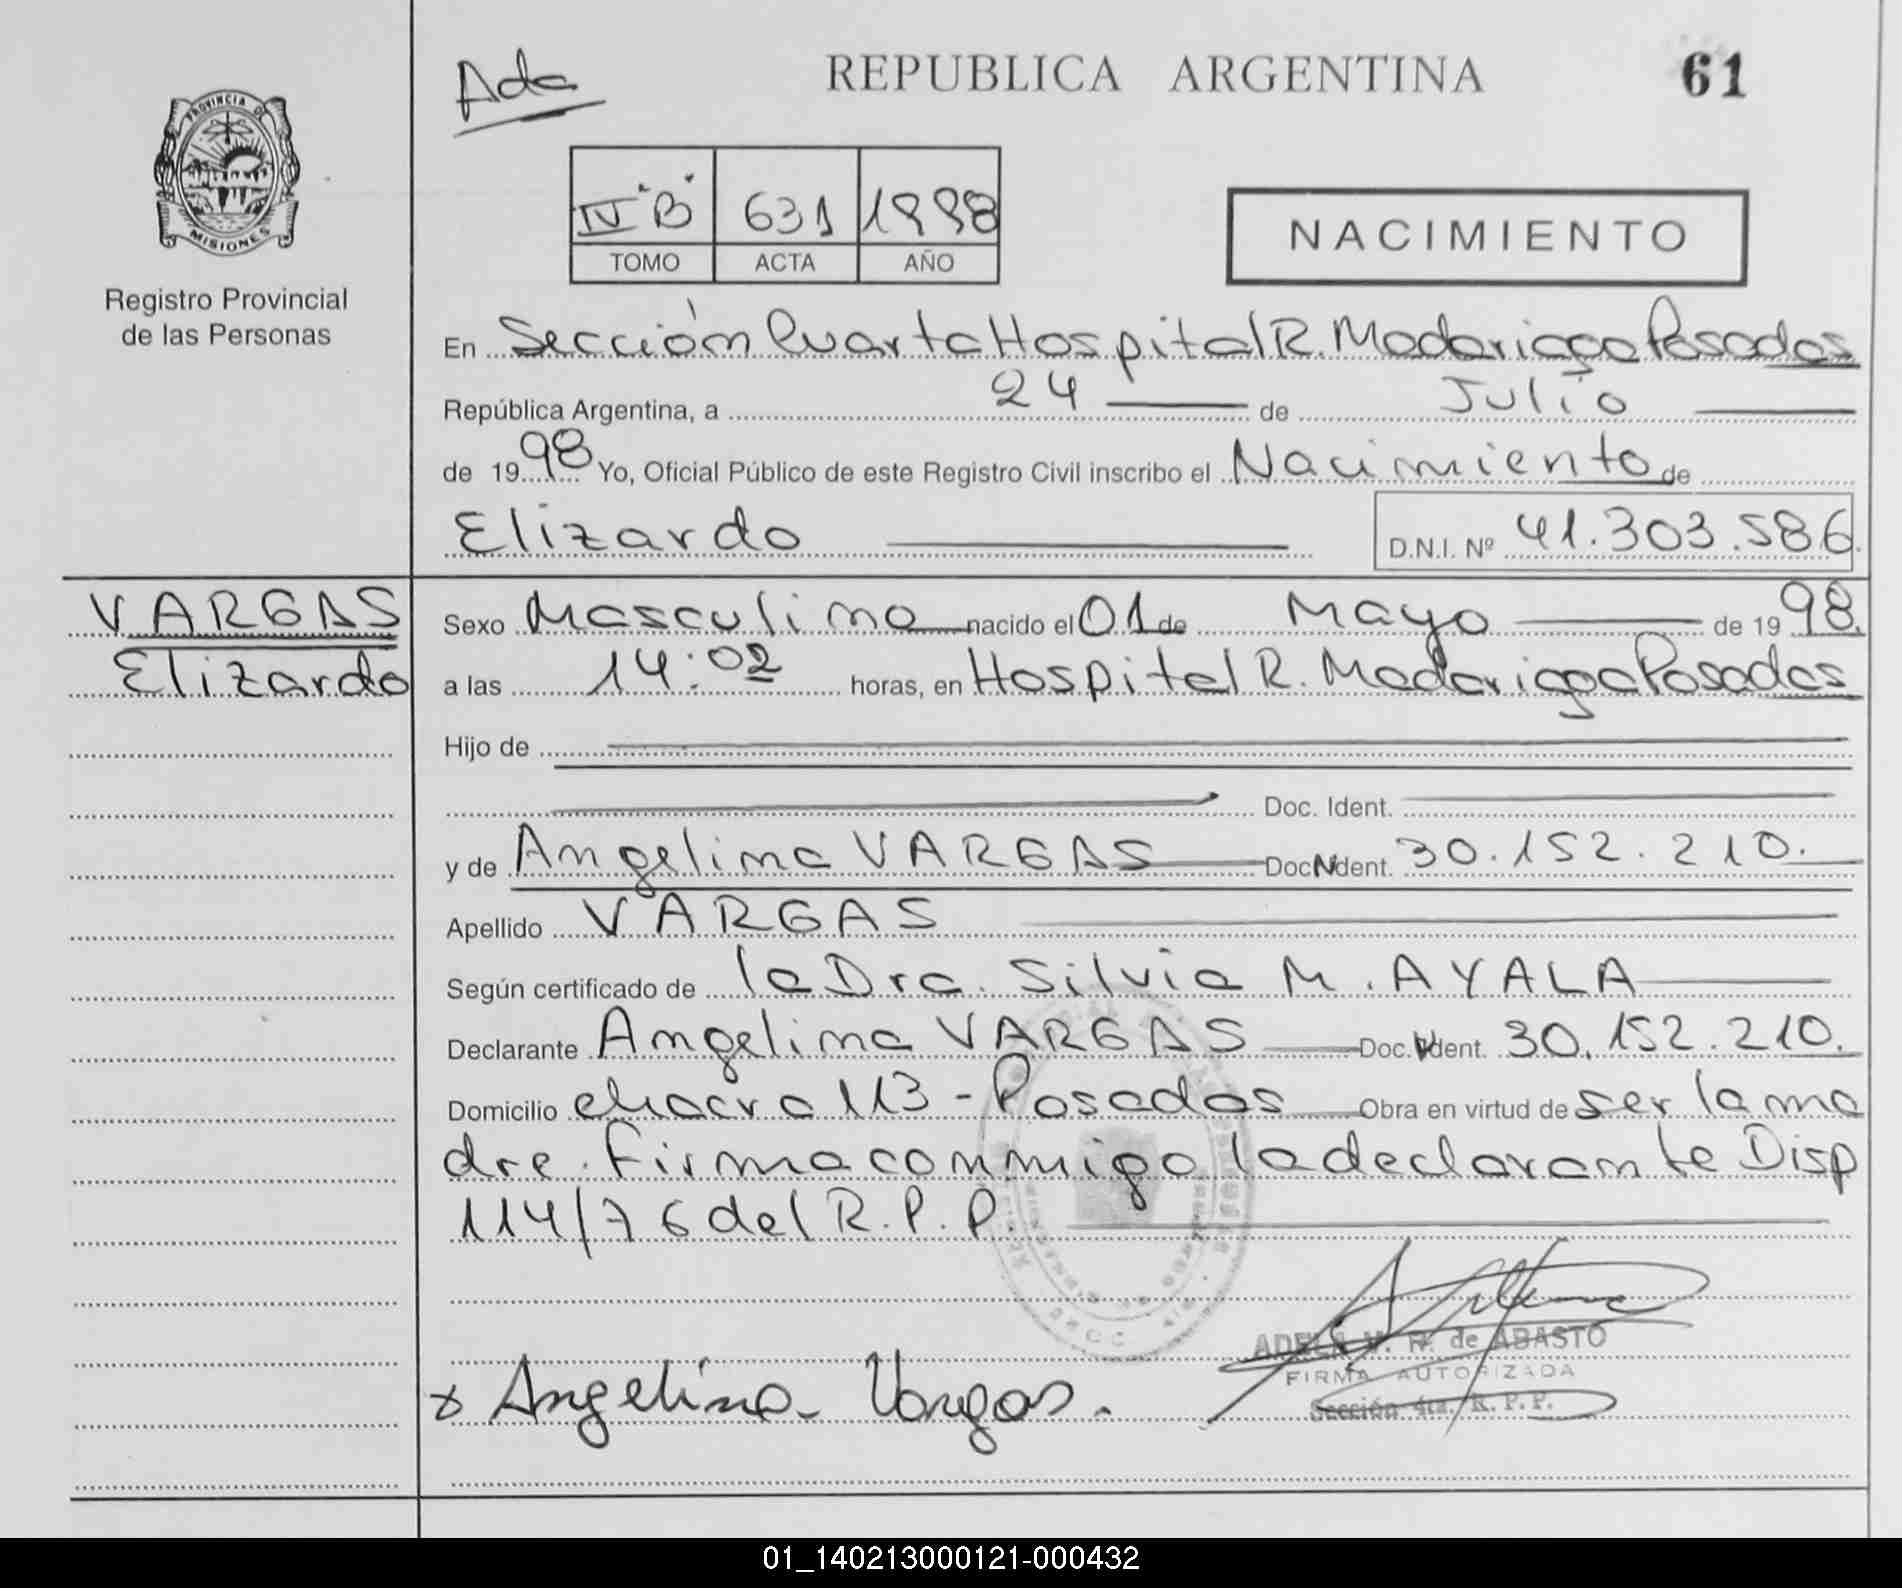 Ada
REPUBLICA ARGENTINA
61
PROVINCIA DE
MISIONES
Registro Provincial
de las Personas
IV "B" 631 1998
TOMO ACTA AÑO
NACIMIENTO
En Sección Cuarta Hospital R. Madariaga Posadas
República Argentina, a 24 de Julio
de 1998 Yo, Oficial Público de este Registro Civil inscribo el Nacimiento de
Elizardo D.N.I. Nº 41.303.586
VARGAS
Elizardo
Sexo Masculino nacido el 01 de Mayo de 1998.
a las 14:02 horas, en Hospital R. Madariaga Posadas
Hijo de
Doc. Ident.
y de Angelina VARGAS Doc N dent. 30.152.210.
Apellido VARGAS
Según certificado de la Dra. Silvia M. AYALA
Declarante Angelina VARGAS Doc. N dent. 30.152.210.
Domicilio chacra 113 - Posadas Obra en virtud de ser la ma
dre. Firma conmigo la declarante Disp
114/76 del R.P.P.
ADELA M. R. de ABASTO
FIRMA AUTORIZADA
Sección 4ta. R.P.P.
x Angelina Vargas.
01_140213000121-000432